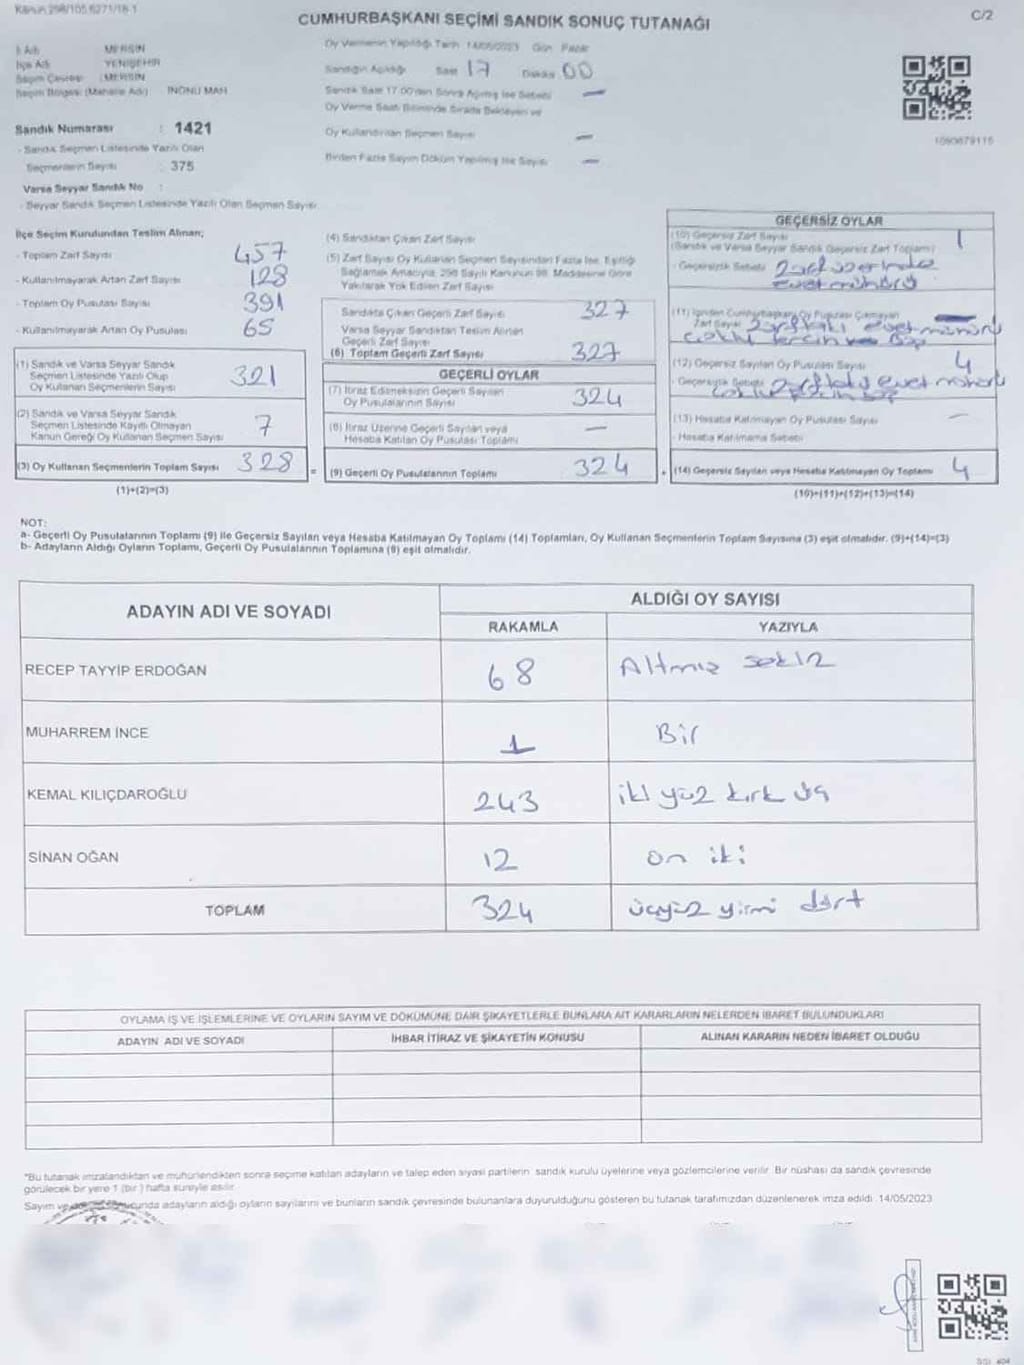 Kanun 298/105 6271/18-1
CUMHURBAŞKANI SEÇİMİ SANDIK SONUÇ TUTANAĞI
C/2
İl Adı : MERSİN
İlçe Adı : YENİŞEHİR
Seçim Çevresi : MERSİN
Seçim Bölgesi (Mahalle Adı) : İNÖNÜ MAH
Oy Vermenin Yapıldığı Tarih 14/05/2023 Gün Pazar
Sandığın Açıldığı Saat 17 Dakika 00
Sandık Saat 17.00'den Sonra Açılmış İse Sebebi —
Oy Verme Saati Bitiminde Sırada Bekleyen ve
Oy Kullandırılan Seçmen Sayısı —
Birden Fazla Sayım Döküm Yapılmış İse Sayısı —
Sandık Numarası : 1421
- Sandık Seçmen Listesinde Yazılı Olan
Seçmenlerin Sayısı : 375
Varsa Seyyar Sandık No :
- Seyyar Sandık Seçmen Listesinde Yazılı Olan Seçmen Sayısı:
İlçe Seçim Kurulundan Teslim Alınan;
- Toplam Zarf Sayısı 457
- Kullanılmayarak Artan Zarf Sayısı 128
- Toplam Oy Pusulası Sayısı 391
- Kullanılmayarak Artan Oy Pusulası 65
(1) Sandık ve Varsa Seyyar Sandık
Seçmen Listesinde Yazılı Olup
Oy Kullanan Seçmenlerin Sayısı 321
(2) Sandık ve Varsa Seyyar Sandık
Seçmen Listesinde Kayıtlı Olmayan
Kanun Gereği Oy Kullanan Seçmen Sayısı 7
(3) Oy Kullanan Seçmenlerin Toplam Sayısı 328
(1)+(2)=(3)
(4) Sandıktan Çıkan Zarf Sayısı
(5) Zarf Sayısı Oy Kullanan Seçmen Sayısından Fazla İse, Eşitliği
Sağlamak Amacıyla, 298 Sayılı Kanunun 98. Maddesine Göre
Yakılarak Yok Edilen Zarf Sayısı
Sandıkta Çıkan Geçerli Zarf Sayısı 327
Varsa Seyyar Sandıktan Teslim Alınan
Geçerli Zarf Sayısı
(6) Toplam Geçerli Zarf Sayısı 327
GEÇERLİ OYLAR
(7) İtiraz Edilmeksizin Geçerli Sayılan
Oy Pusulalarının Sayısı 324
(8) İtiraz Üzerine Geçerli Sayılan veya
Hesaba Katılan Oy Pusulası Toplamı —
= (9) Geçerli Oy Pusulalarının Toplamı 324
GEÇERSİZ OYLAR
(10) Geçersiz Zarf Sayısı 1
(Sandık ve Varsa Seyyar Sandık Geçersiz Zarf Toplamı)
- Geçersizlik Sebebi Zarf üzerinde
evet mühürü
(11) İçinden Cumhurbaşkanı Oy Pusulası Çıkmayan
Zarf Sayısı
(12) Geçersiz Sayılan Oy Pusulası Sayısı 4
- Geçersizlik Sebebi
(13) Hesaba Katılmayan Oy Pusulası Sayısı —
- Hesaba Katılmama Sebebi
+ (14) Geçersiz Sayılan veya Hesaba Katılmayan Oy Toplamı 4
(10)+(11)+(12)+(13)=(14)
NOT:
a- Geçerli Oy Pusulalarının Toplamı (9) ile Geçersiz Sayılan veya Hesaba Katılmayan Oy Toplamı (14) Toplamları, Oy Kullanan Seçmenlerin Toplam Sayısına (3) eşit olmalıdır. (9)+(14)=(3)
b- Adayların Aldığı Oyların Toplamı, Geçerli Oy Pusulalarının Toplamına (9) eşit olmalıdır.
ADAYIN ADI VE SOYADI
ALDIĞI OY SAYISI
RAKAMLA YAZIYLA
RECEP TAYYİP ERDOĞAN 68 Altmış sekiz
MUHARREM İNCE 1 Bir
KEMAL KILIÇDAROĞLU 243 iki yüz kırk üç
SİNAN OĞAN 12 on iki
TOPLAM 324 üçyüz yirmi dört
OYLAMA İŞ VE İŞLEMLERİNE VE OYLARIN SAYIM VE DÖKÜMÜNE DAİR ŞİKAYETLERLE BUNLARA AİT KARARLARIN NELERDEN İBARET BULUNDUKLARI
ADAYIN ADI VE SOYADI İHBAR İTİRAZ VE ŞİKAYETİN KONUSU ALINAN KARARIN NEDEN İBARET OLDUĞU
*Bu tutanak imzalandıktan ve mühürlendikten sonra seçime katılan adayların ve talep eden siyasi partilerin sandık kurulu üyelerine veya gözlemcilerine verilir. Bir nüshası da sandık çevresinde
görülecek bir yere 1 (bir) hafta süreyle asılır.
Sayım ve adayların aldığı oyların sayılarını ve bunların sandık çevresinde bulunanlara duyurulduğunu gösteren bu tutanak tarafımızdan düzenlenerek imza edildi. 14/05/2023